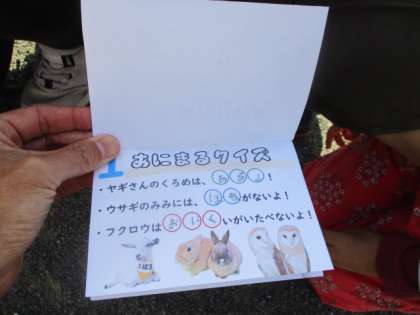 1 あにまるクイズ
・ヤギさんのくろめは、よこ!
・ウサギのみみには、ほねがないよ!
・フクロウはおにくいがいたべないよ!